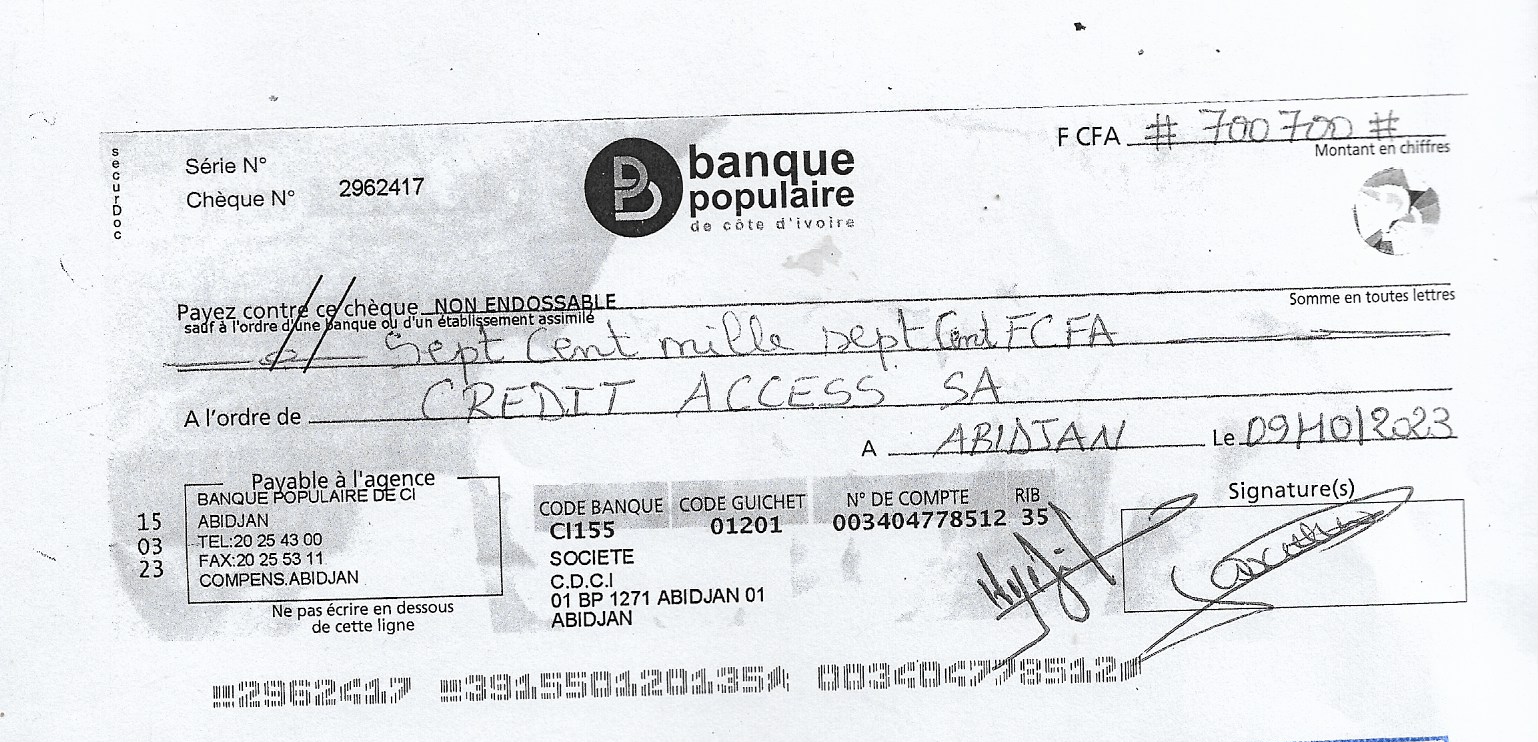 securDoc
Série N°
Chèque N° 2962417
banque
populaire
de côte d'ivoire
F CFA # 700 700 #
Montant en chiffres
Payez contre ce chèque NON ENDOSSABLE
sauf à l'ordre d'une banque ou d'un établissement assimilé
Somme en toutes lettres
Sept Cent mille sept Cent FCFA
A l'ordre de CREDIT ACCESS SA
A ABIDJAN Le 09/10/2023
Payable à l'agence
BANQUE POPULAIRE DE CI
ABIDJAN
TEL:20 25 43 00
FAX:20 25 53 11
COMPENS.ABIDJAN
15
03
23
Ne pas écrire en dessous
de cette ligne
CODE BANQUE CODE GUICHET N° DE COMPTE RIB
CI155 01201 003404778512 35
SOCIETE
C.D.C.I
01 BP 1271 ABIDJAN 01
ABIDJAN
Signature(s)
2962417 391550120135 003404778512